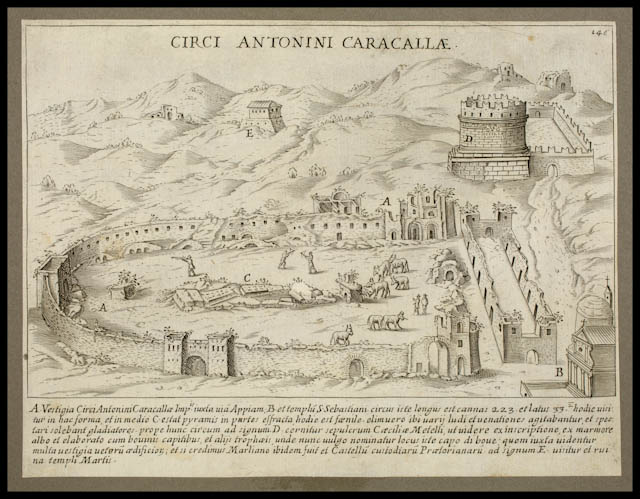 CIRCI ANTONINI CARACALLÆ.
E
D
A
C
A
B
A Vestigia Circi Antonini Caracallæ Imp.is iuxta uia Appiam, B et templū S. Sebastiani circus iste longus est cannas 223. et latus 33. hodie uisi
tur in hac forma, et in medio C est at pyramis in partes effracta hodie est olim uero ibi uarij ludi et uenationes agitabantur et spec
tari solebant gladiatores prope hunc circum ad signum D cernitur sepulcrum Cæciliæ Metelli, ut uidere ex inscriptione, ex marmore
albo et elaborato cum bouinis capitibus, et alijs trophæis, unde nunc uulgo nominatur locus iste capo di boue, quem iuxta uidentur
multa uestigia ueterū ædificiorū, et si credimus Marliano ibidem fuit et Castellū custodiarū Prætorianarū ad signum E. uisitur et rui
na templi Martis.